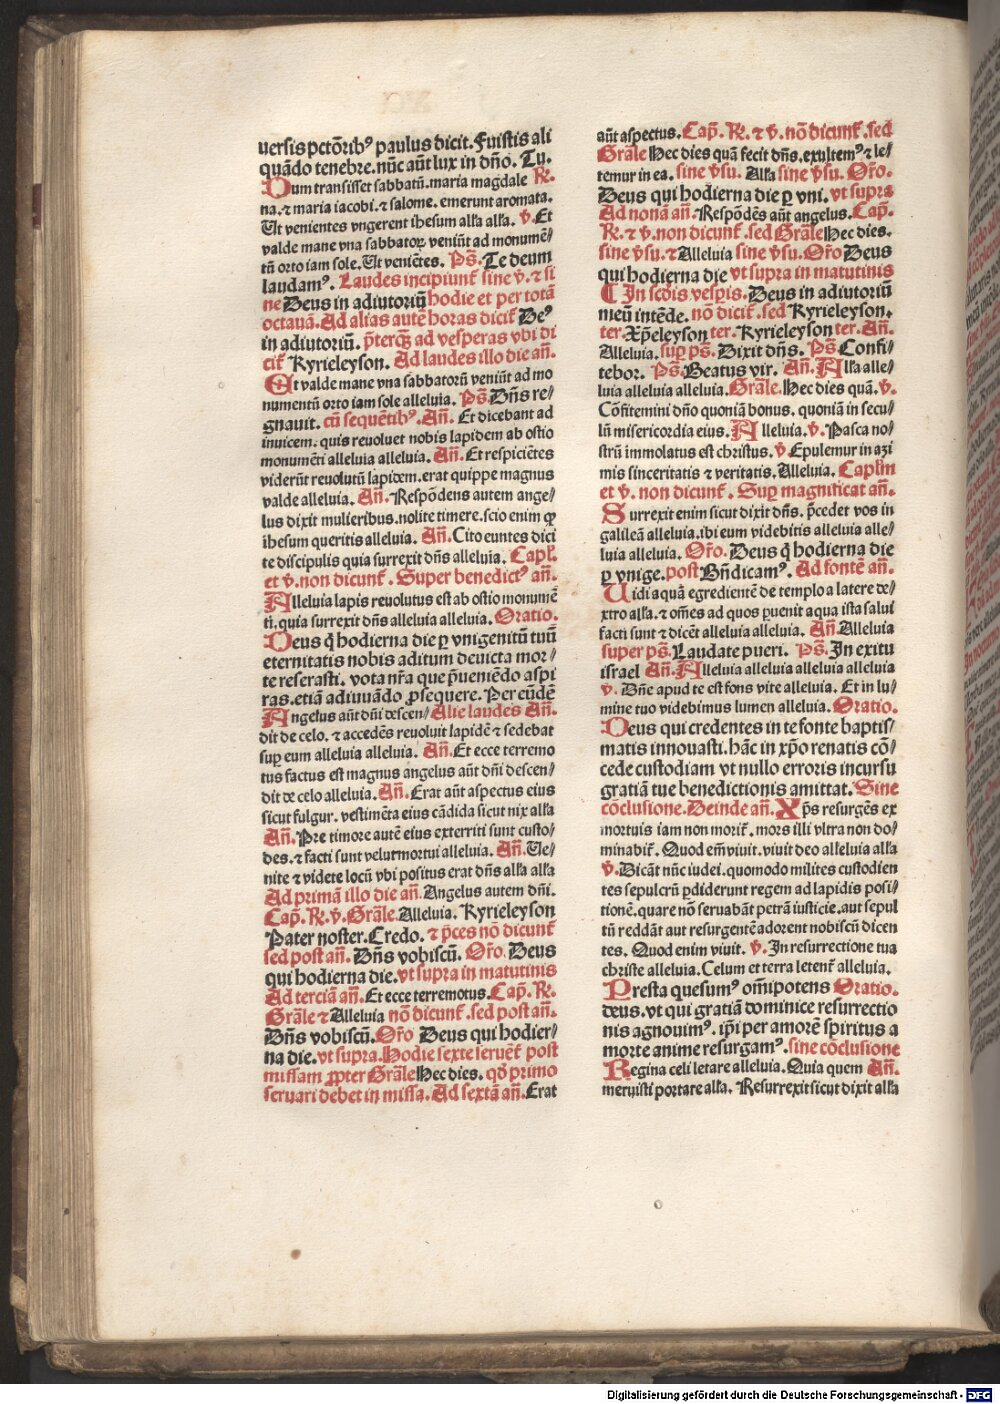 uersis pctōrib⁹ paulus dicit. Fuistis ali
quādo tenebre. nūc aūt lux in dn̄o. Tu.
Dum transisset sabbatū. maria magdale R̄.
na. ⁊ maria iacobi. ⁊ salome. emerunt aromata.
Ut venientes vngerent ihesum alla alla. v̄. Et
valde mane vna sabbatoꝝ veniūt ad monumē⸗
tū orto iam sole. Ut veniētes. Ps̄. Te deum
laudam⁹. Laudes incipiunt̄ sine v̄. ⁊ si
ne Deus in adiutoriū hodie et per totā
octauā. Ad alias autē horas dicit̄ De⁹
in adiutoriū. p̄terqȝ ad vesperas vbi di
cit̄ Kyrieleyson. Ad laudes illo die an̄.
Et valde mane vna sabbatorū veniūt ad mo
numentū orto iam sole alleluia. Ps̄. Dn̄s re⸗
gnauit. cū sequētib⁹. An̄. Et dicebant ad
inuicem. quis reuoluet nobis lapidem ab ostio
monumēti alleluia alleluia. An̄. Et respiciētes
viderūt reuolutū lapidem. erat quippe magnus
valde alleluia. An̄. Respōdens autem ange⸗
lus dixit mulieribus. nolite timere. scio enim ꝙ
ihesum queritis alleluia. An̄. Cito euntes dici
te discipulis quia surrexit dn̄s alleluia. Capl̄.
et v̄. non dicunt̄. Super benedict⁹ an̄.
Alleluia lapis reuolutus est ab ostio monumē
ti. quia surrexit dn̄s alleluia alleluia. Oratio.
Deus q̄ hodierna die ꝑ vnigenitū tuū
eternitatis nobis aditum deuicta mor⸗
te reserasti. vota nr̄a que p̄ueniēdo aspi
ras. etiā adiuuādo ꝓsequere. Per eūdē
Angelus aūt dn̄i descen⸗ Alie laudes An̄.
dit de celo. ⁊ accedēs reuoluit lapidē ⁊ sedebat
suꝑ eum alleluia alleluia. An̄. Et ecce terremo
tus factus est magnus angelus aūt dn̄i descen⸗
dit de celo alleluia. An̄. Erat aūt aspectus eius
sicut fulgur. vestimēta eius cādida sicut nix alla
An̄. Pre timore autē eius exterriti sunt custo⸗
des. ⁊ facti sunt velut mortui alleluia. An̄. Ve⸗
nite ⁊ videte locū vbi positus erat dn̄s alla alla
Ad primā illo die an̄. Angelus autem dn̄i.
Cap̄. R̄. v̄. Grāle. Alleluia. Kyrieleyson
Pater noster. Credo. ⁊ p̄ces nō dicunt̄
sed post an̄. Dn̄s vobiscū. Or̄o. Deus
qui hodierna die. vt supra in matutinis
Ad terciā an̄. Et ecce terremotus. Cap̄. R̄.
Grāle ⁊ Alleluia nō dicunt̄. sed post an̄.
Dn̄s vobiscū. Or̄o Deus qui hodier⸗
na die. vt supra. Hodie sexte seruet̄ post
missam ꝓpter Grāle Hec dies. qd̄ primo
seruari debet in missa. Ad sextā an̄. Erat
aūt aspectus. Cap̄. R̄. ⁊ v̄. nō dicunt̄. sed
Grāle Hec dies quā fecit dn̄s. exultem⁹ ⁊ le⸗
temur in ea. sine v̄su. Alla sine v̄su. Or̄o.
Deus qui hodierna die ꝑ vni. vt supra
Ad nonā an̄. Respōdēs aūt angelus. Cap̄.
R̄. ⁊ v̄. non dicunt̄. sed Grāle Hec dies.
sine v̄su. ⁊ Alleluia sine v̄su. Or̄o Deus
qui hodierna die vt supra in matutinis
¶ In scd̄is vesp̄is. Deus in adiutoriū
meū intēde. nō dicit̄. sed Kyrieleyson.
ter. Xp̄eleyson ter. Kyrieleyson ter. An̄.
Alleluia. suꝑ ps̄. Dixit dn̄s. Ps̄. Confi⸗
tebor. Ps̄. Beatus vir. An̄. Alla alle⸗
luia alleluia alleluia. Grāle. Hec dies quā. v̄.
Cōfitemini dn̄o quoniā bonus. quoniā in secu⸗
lū misericordia eius. Alleluia. v̄. Pasca no⸗
strū immolatus est christus. v̄ Epulemur in azi
mis sinceritatis ⁊ veritatis. Alleluia. Capl̄m
et v̄. non dicunt̄. Suꝑ magnificat an̄.
Surrexit enim sicut dixit dn̄s. p̄cedet vos in
galileā alleluia. ibi eum videbitis alleluia alle⸗
luia alleluia. Or̄o. Deus q̄ hodierna die
ꝑ vnige. post Bn̄dicam⁹. Ad fontē an̄.
Uidi aquā egredientē de templo a latere de⸗
xtro alla. ⁊ om̄es ad quos ꝑuenit aqua ista salui
facti sunt ⁊ dicēt alleluia alleluia. An̄ Alleluia
super ps̄. Laudate pueri. Ps̄. In exitu
israel An̄. Alleluia alleluia alleluia alleluia
v̄. Dn̄e apud te est fons vite alleluia. Et in lu⸗
mine tuo videbimus lumen alleluia. Oratio.
Deus qui credentes in te fonte baptis⸗
matis innouasti. hāc in xp̄o renatis cō⸗
cede custodiam vt nullo erroris incursu
gratiā tue benedictionis amittat. Sine
cōclusione. Deinde an̄. Xp̄s resurgēs ex
mortuis iam non morit̄. mors illi vltra non do⸗
minabit̄. Quod em̄ viuit. viuit deo alleluia alla
v̄. Dicāt nūc iudei. quomodo milites custodien
tes sepulcrū ꝑdiderunt regem ad lapidis posi⸗
tionē. quare nō seruabāt petrā iusticie. aut sepul
tū reddāt aut resurgentē adorent nobiscū dicen
tes. Quod enim viuit. v̄. In resurrectione tua
christe alleluia. Celum et terra letent̄ alleluia.
Presta quesum⁹ om̄ipotens Oratio.
deus. vt qui gratiā dominice resurrectio
nis agnouim⁹. ip̄i per amorē spiritus a
morte anime resurgam⁹. sine cōclusione
Regina celi letare alleluia. Quia quem An̄.
meruisti portare alla. Resurrexit sicut dixit alla
Digitalisierung gefördert durch die Deutsche Forschungsgemeinschaft - DFG